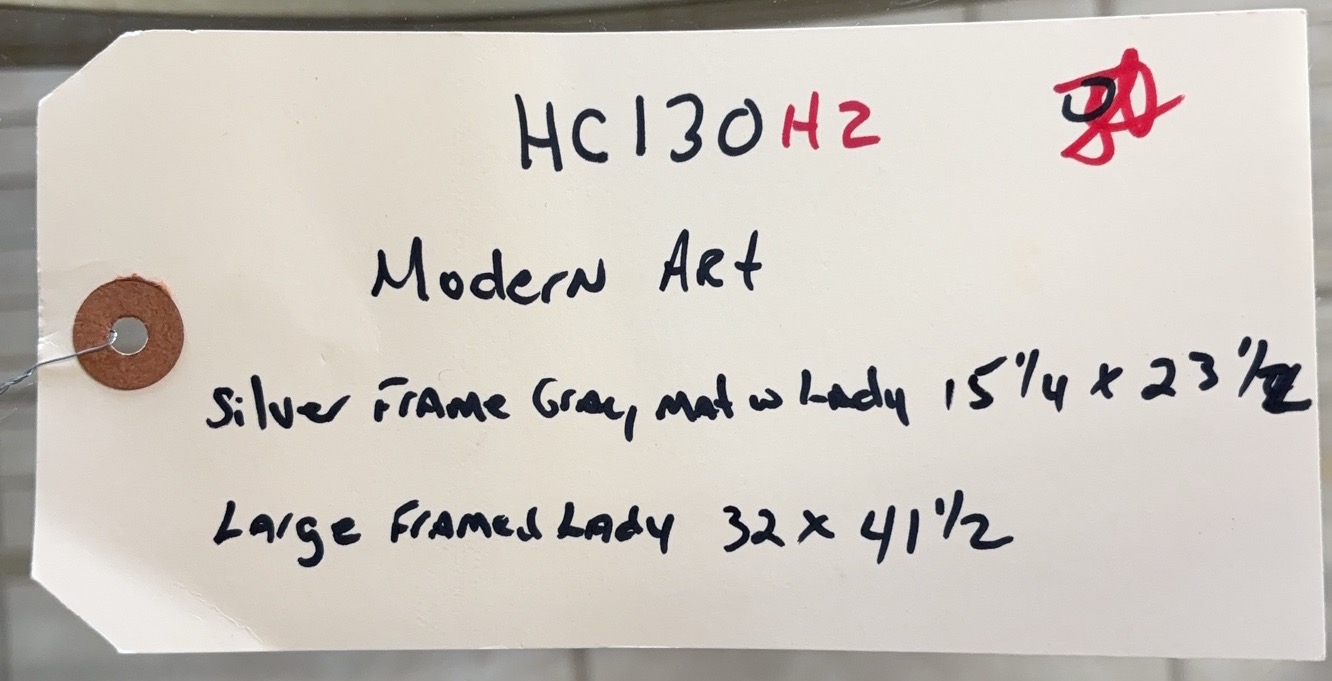 HC130H2
Modern Art
Silver Frame Gray mat w Lady 15 1/4 x 23 1/2
Large Framed Lady 32 x 41 1/2